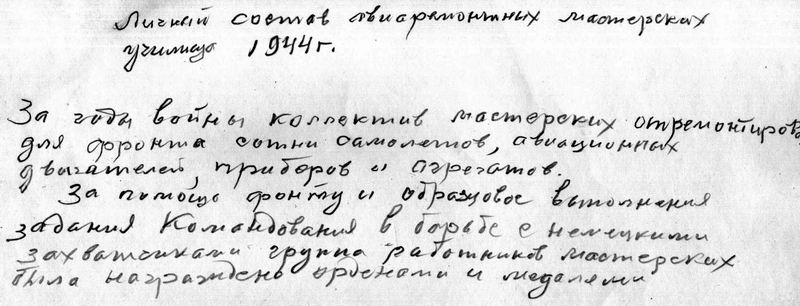 Личный состав авиаремонтных мастерских
училища 1944г.
За годы войны коллектив мастерских отремонтировал
для фронта сотни самолетов, авиационных
двигателей, приборов и агрегатов.
За помощь фронту и образцовое выполнения
задания Командования в борьбе с немецкими
захватчиками группа работников мастерских
была награждена орденами и медалями